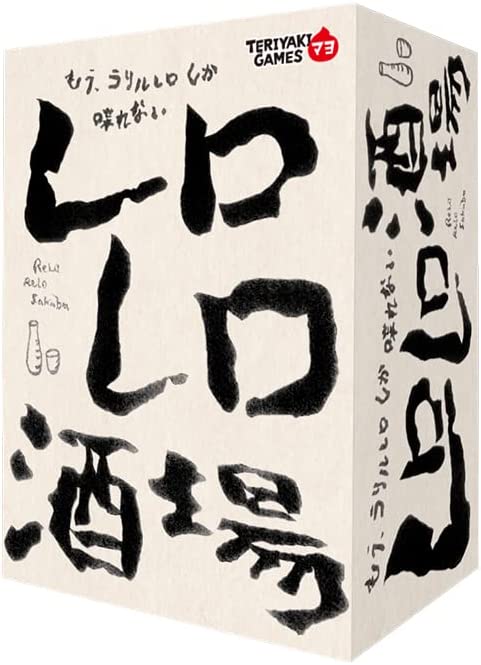 TERIYAKI
GAMES マヨ
もう、ラリルレロしか
喋れない
レロ
レロ
酒場
ReLo
ReLo
Sakaba
レロレロ酒場
もう、ラリルレロしか喋れない
ReLo
ReLo
Sakaba